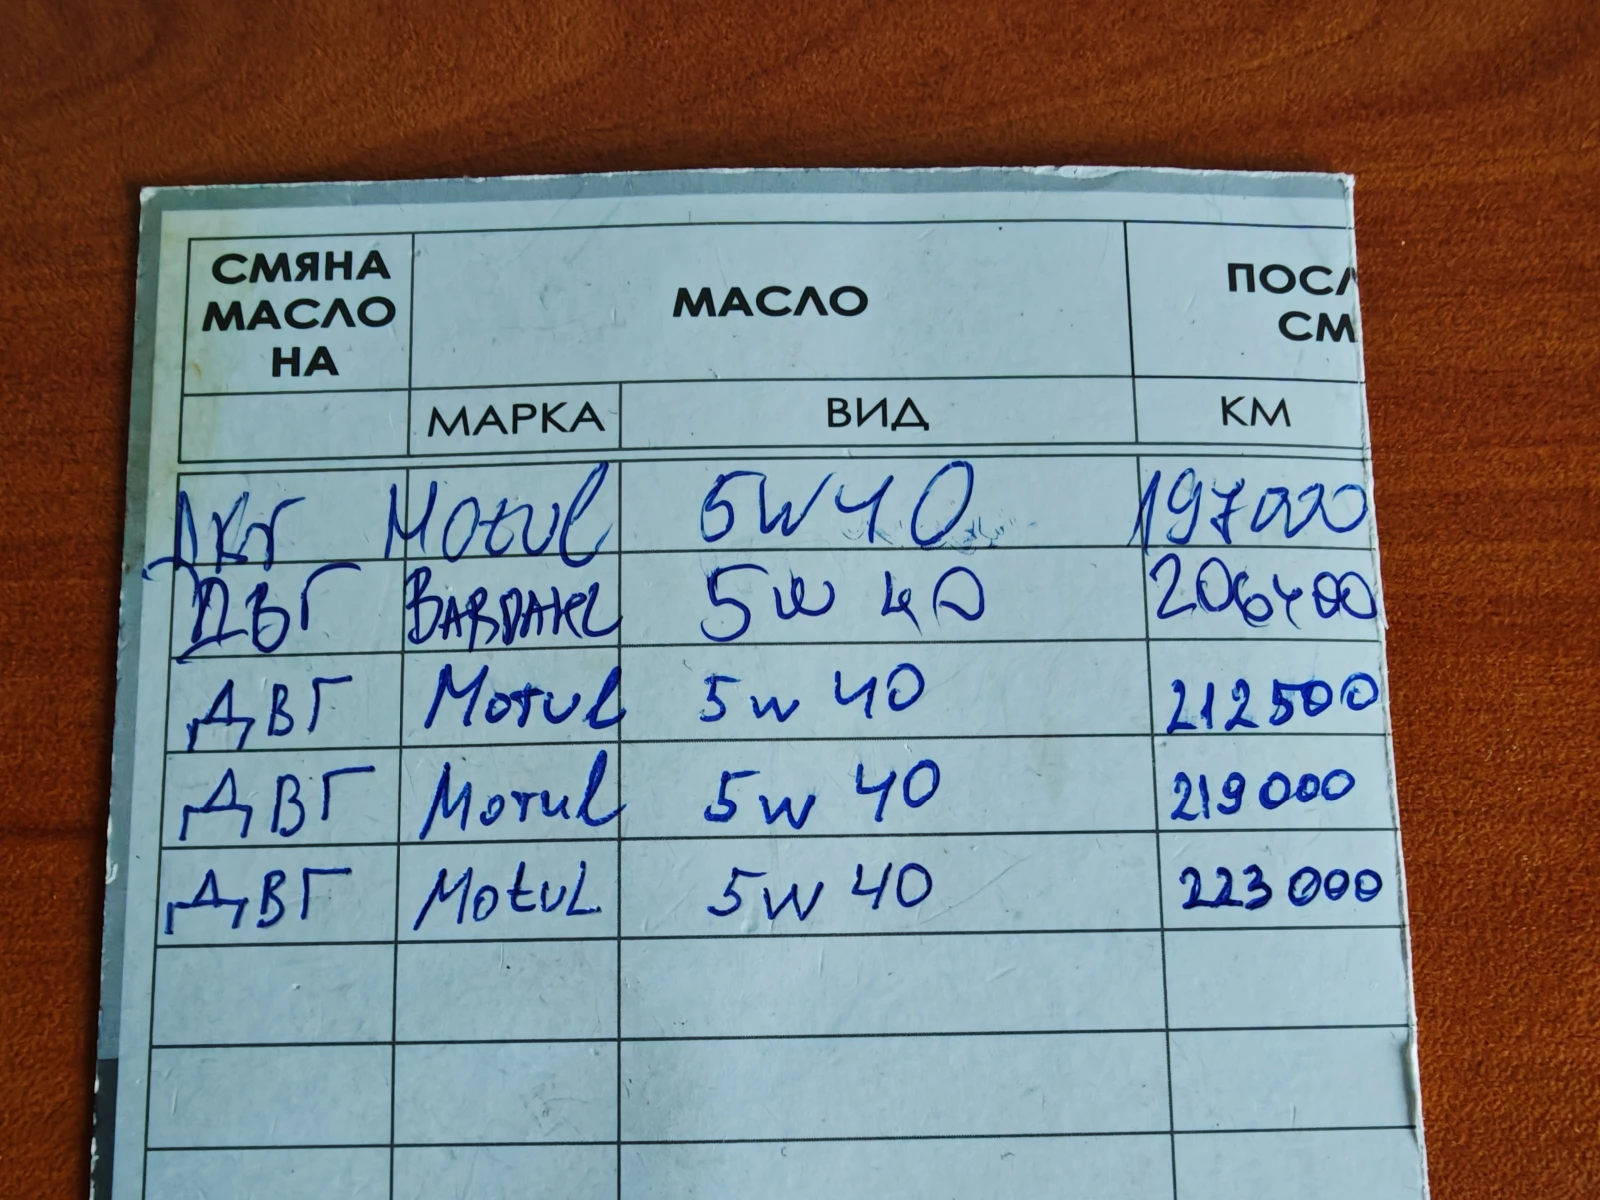 СМЯНА МАСЛО НА МАСЛО ПОСЛ СМ
МАРКА ВИД КМ
ДКГ Motul 5W40 197000
ДВГ BARDAHL 5W40 206400
ДВГ Motul 5W40 212500
ДВГ Motul 5W40 219000
ДВГ Motul 5W40 223000